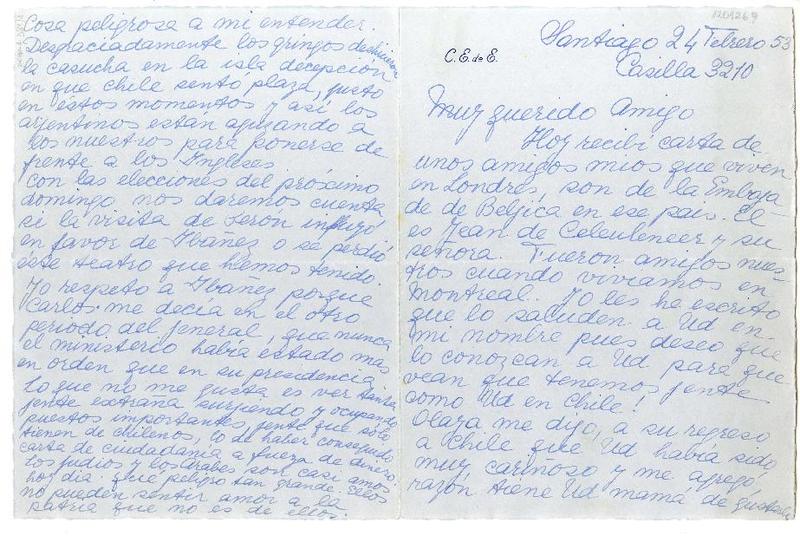 1201269
C. E. de E.
Santiago 24 Febrero 53
Casilla 3210
Muy querido Amigo
Hoy recibi carta de
unos amigos mios que viven
en Londres, son de la Embaja
de de Beljica en ese pais. El
es Jean de
y su
señora. Fueron amigos nues-
tros cuando viviamos en
Montreal. Yo les he escrito
que lo saluden a Ud en
mi nombre pues deseo que
lo conozcan a Ud para que
vean que tenemos jente
como Ud en Chile!
Olaya me dijo, a su regreso
a Chile que Ud habia sido
muy cariñoso y me agregó,
razón tiene Ud mamá de
Cosa peligrosa a mi entender.
Desgraciadamente los gringos
la casucha en la isla decepción
en que Chile sentó plaza, justo
en éstos momentos y así los
arjentinos están aguzando a
los nuestros para ponerse de
frente a los Ingleses.
Con las elecciones del próximo
domingo nos daremos cuenta
si la visita de Perón influyó
en favor de Ibáñez o se perdió
éste teatro que hemos tenido.
Yo respeto a Ibañez porque
Carlos me decía en el otro
periodo del jeneral, que nunca
el ministerio habia estado mas
en orden que en su presidencia
lo que no me gusta es ver tanta
jente extraña surjiendo y ocupando
puestos importantes, jente que sólo
tienen de chilenos, lo de haber conseguido
carta de ciudadania a fuerza de dinero.
Los judios y los árabes son casi amos
hoy dia. que peligro tan grande. Ellos
no pueden sentir amor a la
patria que no es de ellos.